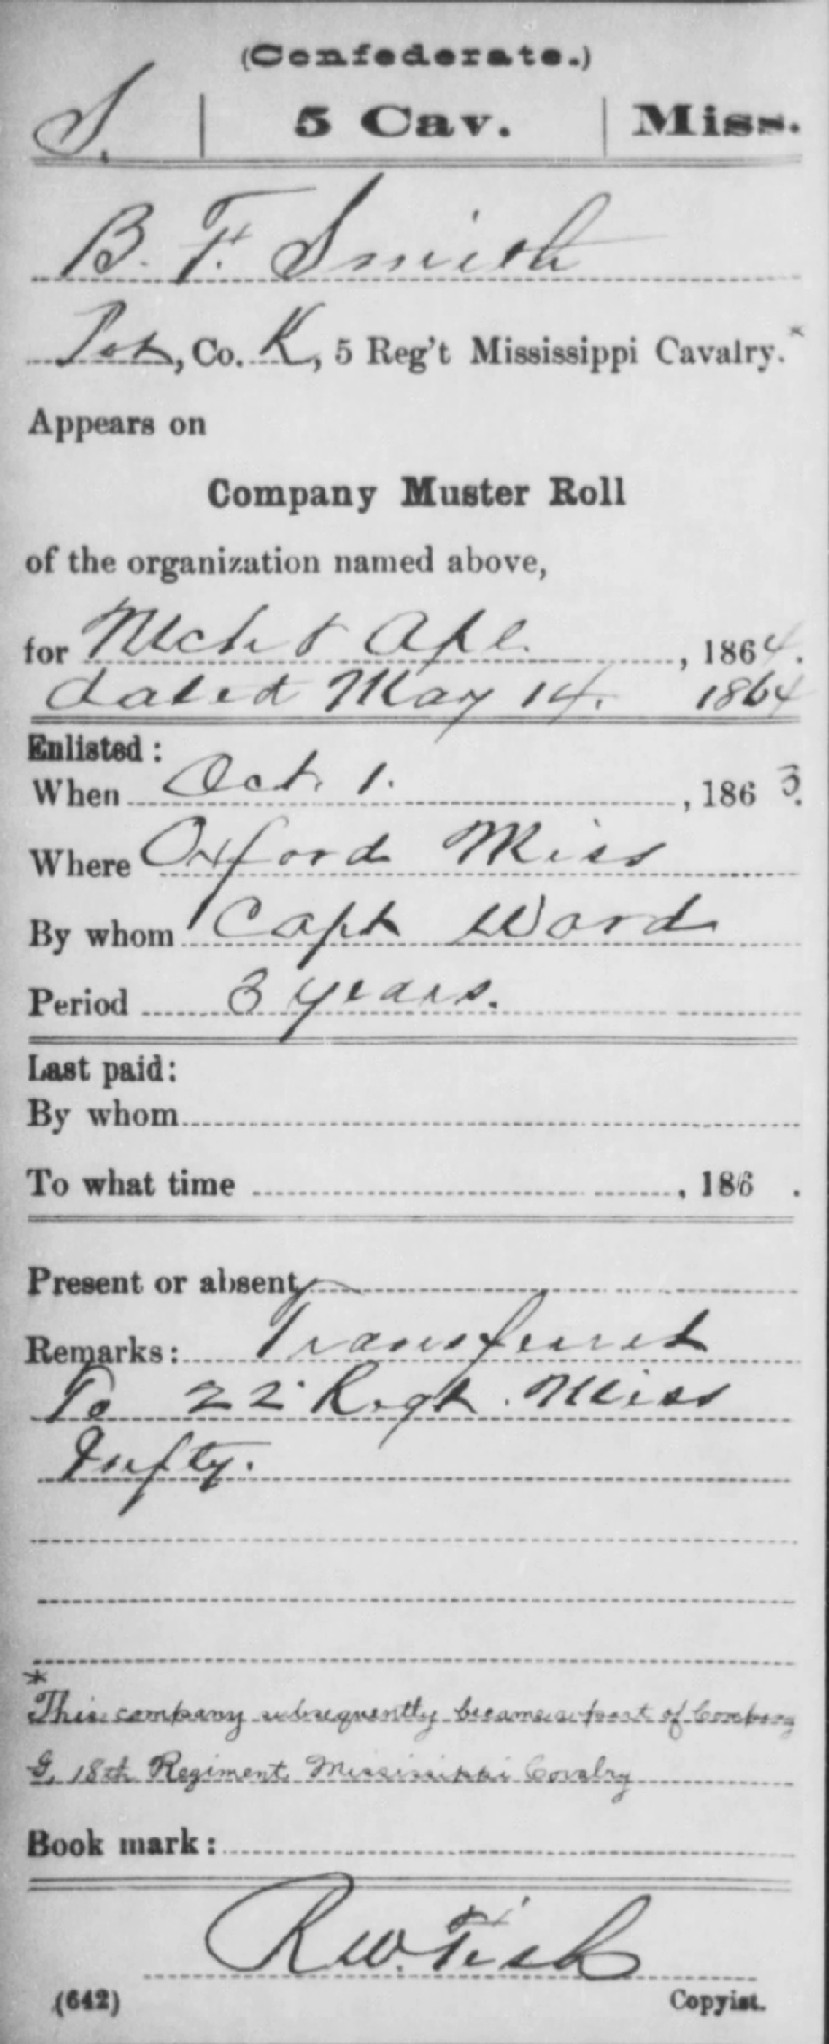 (Confederate.)
S. | 5 Cav. | Miss.
B. F. Smith
Pvt, Co. K, 5 Reg't Mississippi Cavalry.*
Appears on
Company Muster Roll
of the organization named above,
for Mch & Apl. , 1864.
dated May 14. 1864
Enlisted:
When Oct. 1. , 1863.
Where Oxford Miss
By whom Capt Ward
Period 3 years.
Last paid:
By whom
To what time , 186 .
Present or absent
Remarks: Transferred
To 22 Regt. Miss
Infty.
*
This company subsequently became a part of Company
G, 18th Regiment Mississippi Cavalry
Book mark:
R. W. Fish
(642) Copyist.